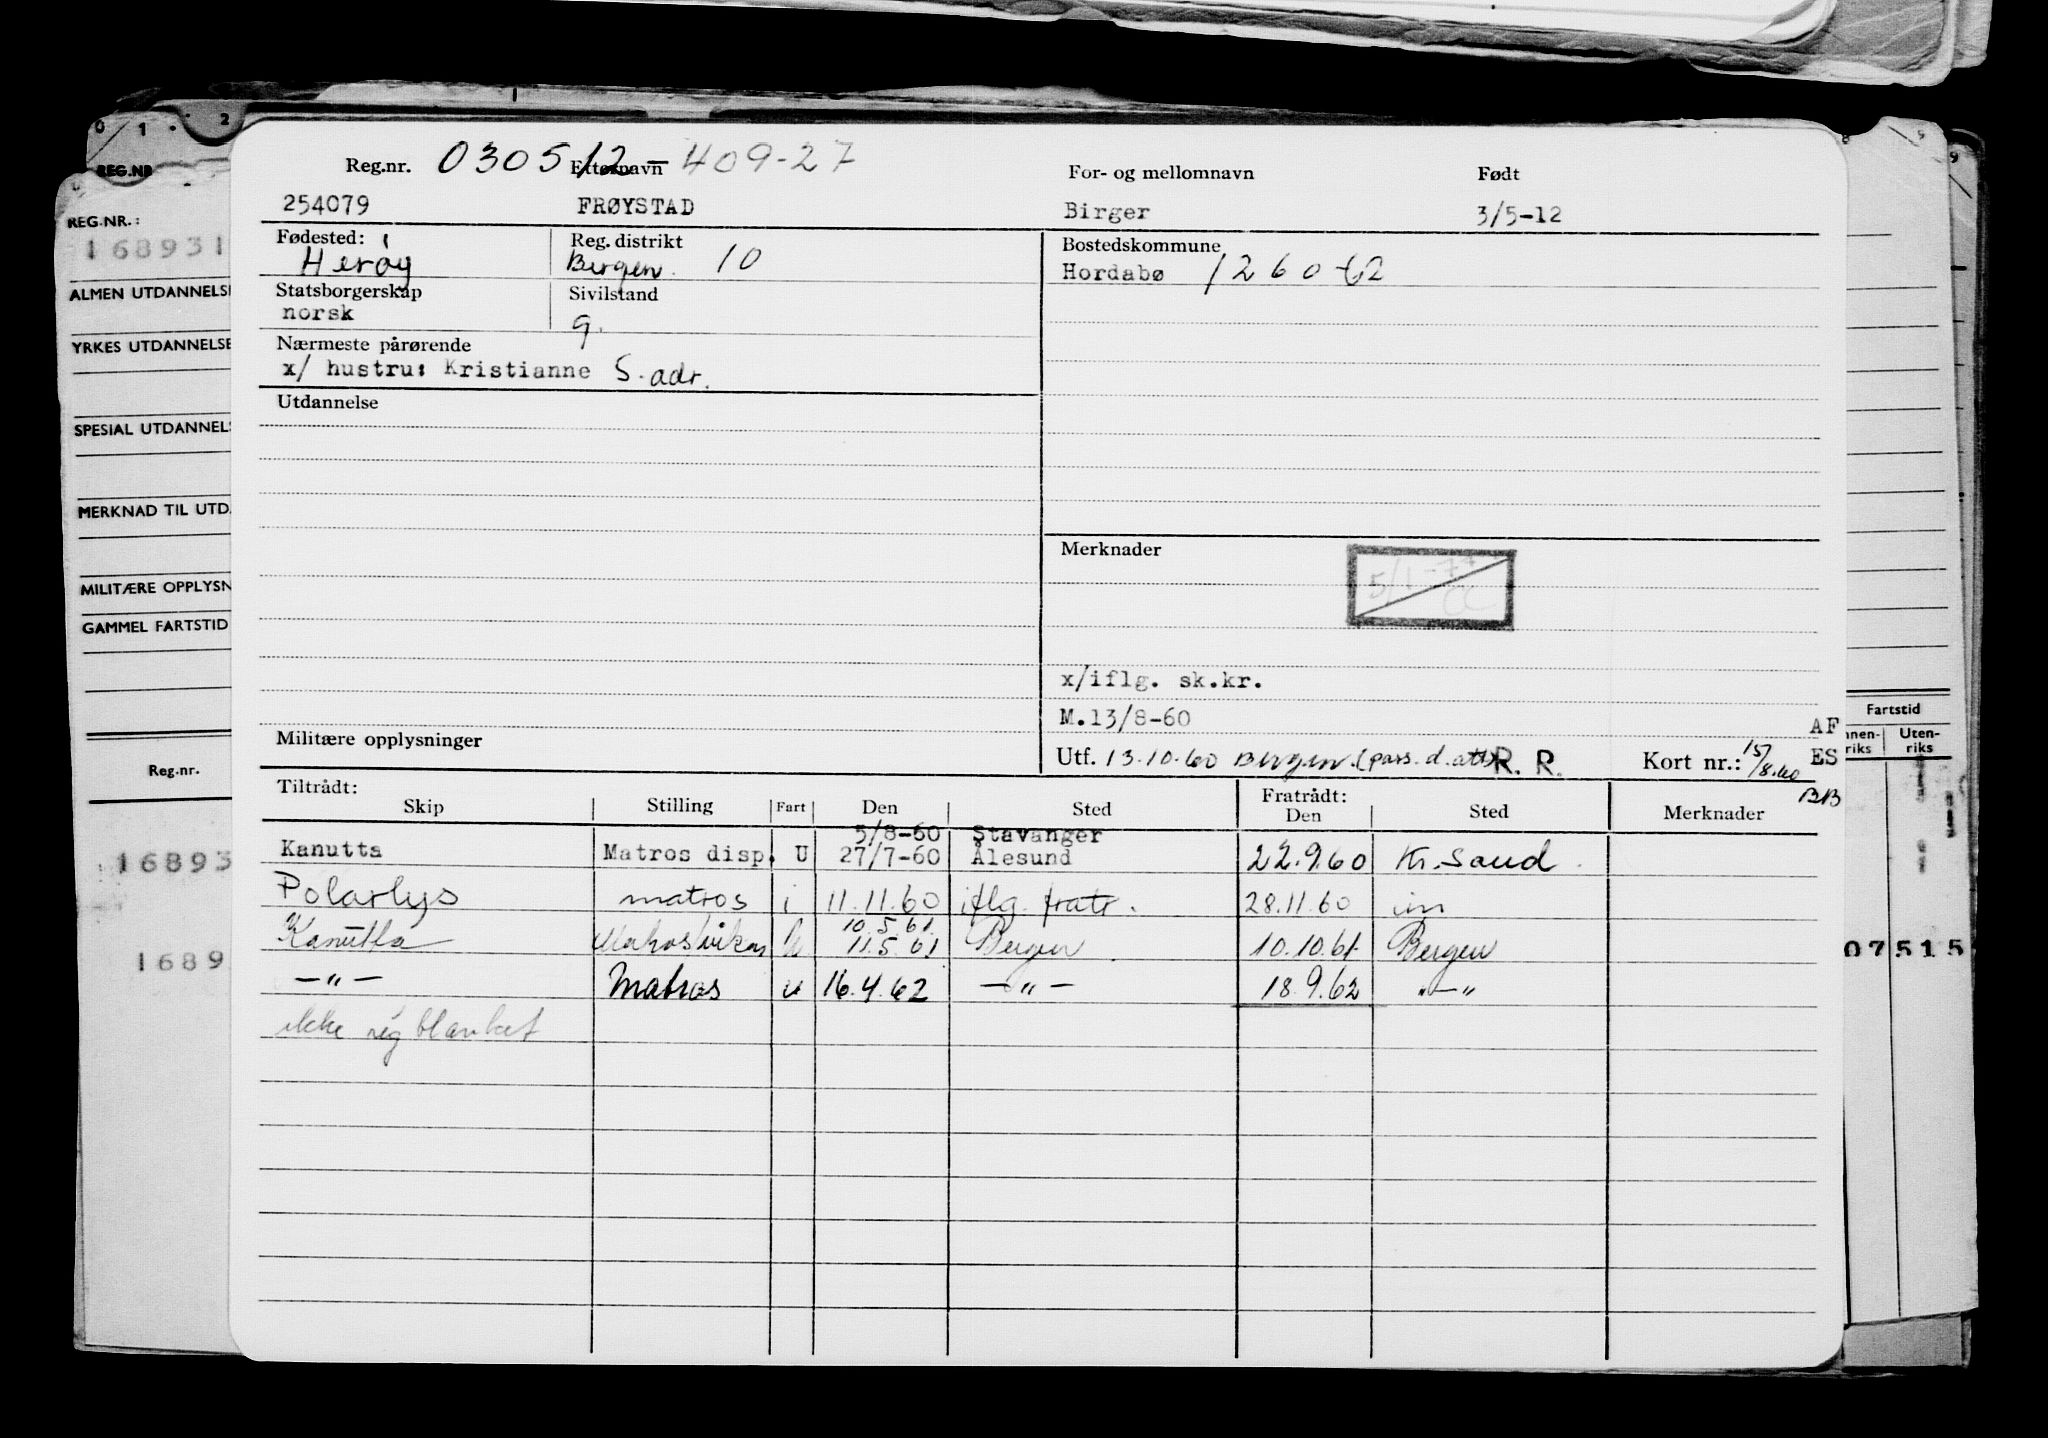 0 1 2
REG.NR
REG.NR.:
168931
ALMEN UTDANNELSE
YRKES UTDANNELSE
SPECIAL UTDANNELS
MERKNAD TIL UTD.
MILITÆRE OPPLYSN
GAMMEL FARTSTID
Reg.nr.
16893
1689
Reg.nr. 030512-409-27 Etternavn For- og mellomnavn Født
254079 FRØYSTAD Birger 3/5-12
Fødested: Reg. distrikt Bostedskommune
Herøy Bergen. 10 Hordabø 1260-62
Statsborgerskap Sivilstand
norsk g.
Nærmeste pårørende
x/ hustru: Kristianne S. adr.
Utdannelse
Merknader
5/1-77
CC
x/iflg. sk.kr.
M.13/8-60
Militære opplysninger Utf. 13.10.60 Bergen. (pass. d. att) R. R. Kort nr.: 15/8.60
AF
ES
BB
Tiltrådt: Fratrådt:
Skip Stilling Fart Den Sted Den Sted Merknader
5/8-60 Stavanger
Kanutta Matros disp. U 27/7-60 Ålesund 22.9.60 Kr.sand.
Polarlys matros i 11.11.60 iflg. fratr. 28.11.60 im
10.5.61
Kanutta Matros vikar U 11.5.61 Bergen. 10.10.61 Bergen
—"— Matros u 16.4.62 —"— 18.9.62 "—"
ikke reg blanket
8 9
9
Fartstid
nnen-riks Uten-riks
07515